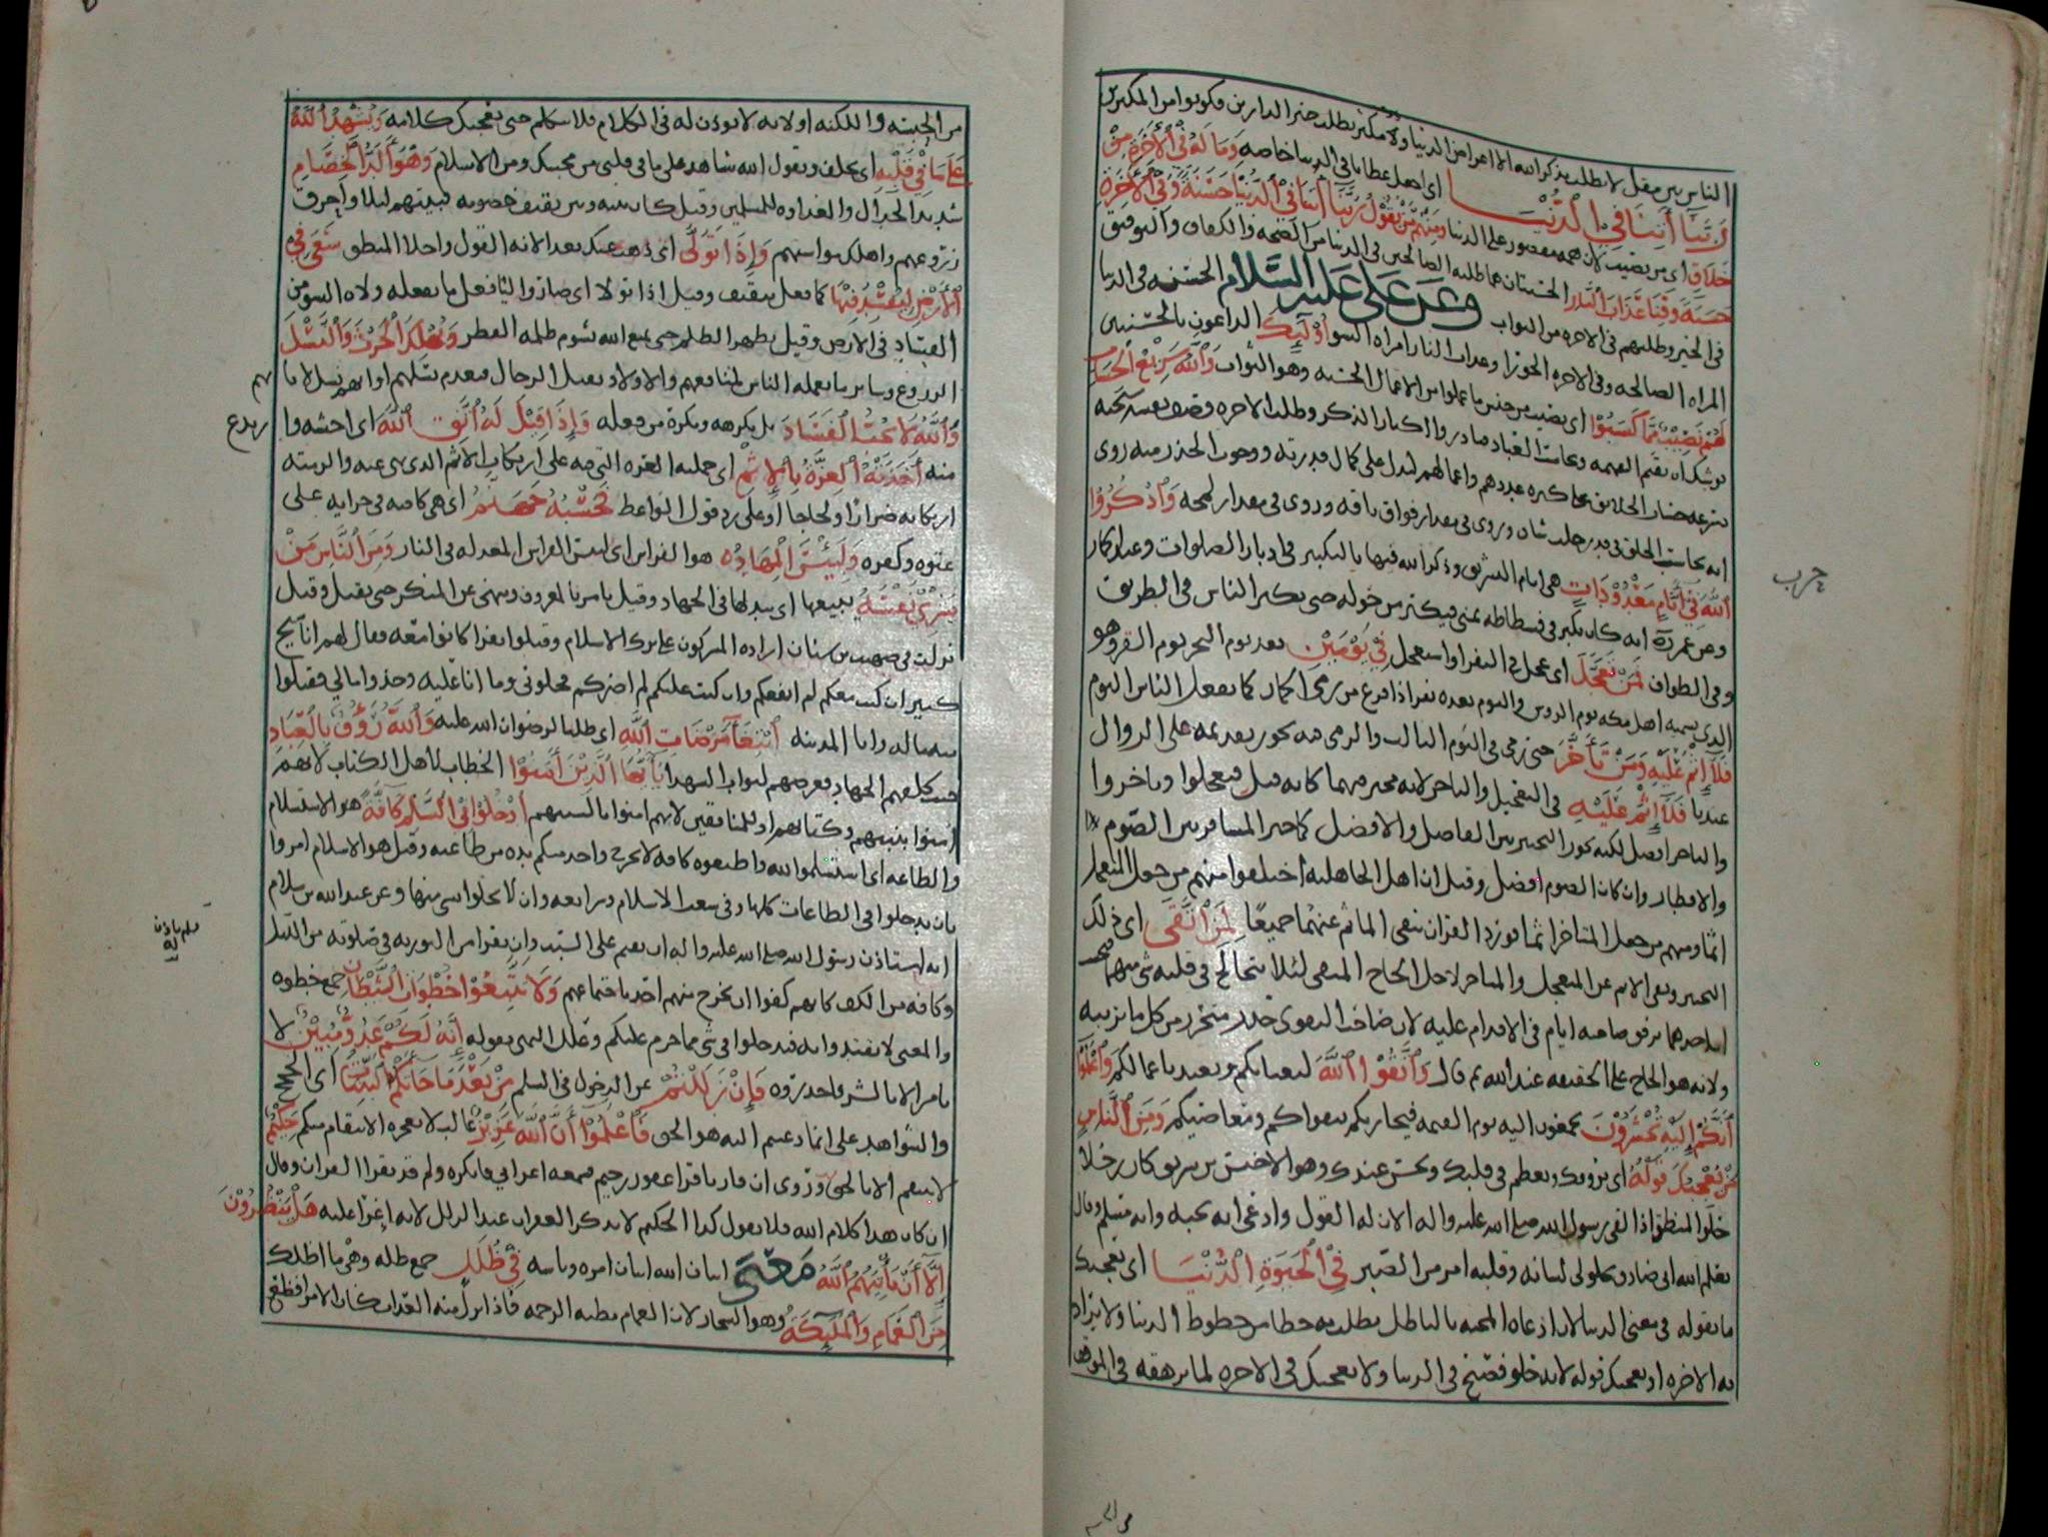 الناس بين مقل لا يطلب بذكر الله الا اعراض الدنيا ومكثر يطلب خير الدارين فكونوا من المكثرين
رَبَّنَا آتِنَا فِي الدُّنْيَا اي اجعل عطايانا في الدنيا خاصه وَمَا لَهُ فِي الْأَخِرَةِ مِنْ
خَلَاقٍ اي من نصيب لان همه مقصور على الدنيا وَمِنْهُمْ مَنْ يَقُولُ رَبَّنَا آتِنَا فِي الدُّنْيَا حَسَنَةً وَفِي الْأَخِرَةِ
حَسَنَةً وَقِنَا عَذَابَ النَّارِ الحسنتان هما طلبه الصالحين في الدنيا من الصحه والكفاف والتوفيق
في الخير وطلبهم في الاخره من الثواب وعن علي عليه السلام الحسنه في الدنيا
المراه الصالحه وفي الاخره الحورا وعذاب النار امراه السوا أُولَٰئِكَ الداعون بالحسنتين
لَهُمْ نَصِيبٌ مِمَّا كَسَبُوا اي نصيب من جنس ما عملوا من الاعمال الحسنه وهو الثواب وَاللَّهُ سَرِيعُ الْحِسَابِ
يوشك ان يقيم القيمه ويحاسب العباد فبادروا اكثار الذكر وطلب الاخره وصف نفسه
بسرعه حساب الخلائق على كثره عددهم واعمالهم ليدل على كمال قدرته ووجوب الحذر منه روي
انه يحاسب الخلق في قدر حلب شاه وروي في مقدار فواق ناقه وروي في مقدار لمحه وَاذْكُرُوا
اللَّهَ فِي أَيَّامٍ مَعْدُودَاتٍ هي ايام التشريق وذكر الله فيها بالتكبير في ادبار الصلوات وعند الجمار
وعن عمر انه كان يكبر في فسطاطه بمنى فيكبر من حوله حتى يكبر الناس في الطريق
وفي الطواف فَمَنْ تَعَجَّلَ اي عجل في النفر او استعجل فِي يَوْمَيْنِ بعد يوم النحر يوم القر وهو
الذي يسميه اهل مكه يوم الروس واليوم بعده نفر اذا فرغ من رمي الجمار كما يفعل الناس اليوم
فَلَا إِثْمَ عَلَيْهِ وَمَنْ تَأَخَّرَ حتى رمى في اليوم الثالث والرمي فيه يجوز تقديمه على الزوال
عندنا فَلَا إِثْمَ عَلَيْهِ في التعجيل والتاخر لانه مخير فيهما كانه قيل فتعجلوا وتاخروا
والتاخر افضل لكنه يجوز التخيير بين الفاضل والافضل كما خير المسافر بين الصوم
والافطار وان كان الصوم افضل وقيل ان اهل الجاهليه اختلفوا فمنهم من جعل المتعجل
اثما ومنهم من جعل المتاخر اثما فورد القران بنفي الماثم عنهما جميعا لِمَنِ اتَّقَى اي ذلك
التخيير ونفي الاثم عن المتعجل والمتاخر لاجل الحاج المتقي لئلا يتخالج في قلبه شي منهما
احدهما يرهق صاحبه اثام في الاقدام عليه لان صاحب التقوى حذر متحرز من كل ما يريبه
ولانه هو الحاج على الحقيقه عند الله ثم قال وَاتَّقُوا اللَّهَ ليعبا بكم ويعتد باعمالكم وَاعْلَمُوا
أَنَّكُمْ إِلَيْهِ تُحْشَرُونَ تجمعون اليه يوم القيمه فيجازيكم بتقواكم ومعاصيكم وَمِنَ النَّاسِ
مَنْ يُعْجِبُكَ قَوْلُهُ اي يروقك ويعظم في قلبك ويحسن عندك وهو الاخنس بن شريق كان رجلا
حلو المنطق اذا لقي رسول الله صلى الله عليه واله الان له القول وادعى انه يحبه وانه مسلم وقال
يعلم الله اني صادق حلولي لسانه وقلبه امر من الصبر فِي الْحَيَوةِ الدُّنْيَا اي يعجبك
ما يقوله في معنى الدنيا لان ادعاه المحبه بالباطل يطلب به حظا من حظوظ الدنيا ولا يريد
به الاخره او يعجبك قوله لانه حلو فصيح في الدنيا ولا يعجبك في الاخره لما يرهقه في الموقف
حرب
من الحبسه واللكنه او لانه لا يوذن له في الكلام فلا يتكلم حتى يعجبك كلامه وَيُشْهِدُ اللَّهَ
عَلَى مَا فِي قَلْبِهِ اي يحلف ويقول الله شاهد على ما في قلبي من محبتك ومن الاسلام وَهُوَ أَلَدُّ الْخِصَامِ
شديد الجدال والعداوه للمسلمين وقيل كان بينه وبين ثقيف خصومه فبيتهم ليلا واحرق
زروعهم واهلك مواشيهم وَإِذَا تَوَلَّى اي ذهب عنك بعد الانه القول واحلا المنطق سَعَى فِي
الْأَرْضِ لِيُفْسِدَ فِيهَا كما فعل بثقيف وقيل اذا تولا اي صار واليا فعل ما يفعله ولاه السو من
الفساد في الارض وقيل يظهر الظلم حتى يمنع الله بشوم ظلمه القطر وَيُهْلِكَ الْحَرْثَ وَالنَّسْلَ
الزروع وساير ما يعمله الناس لمنافعهم والاولاد بقتل الرجال فيعدم نسلهم او انهم نسل لا با
وَاللَّهُ لَا يُحِبُّ الْفَسَادَ بل يكرهه ويكره من فعله وَإِذَا قِيلَ لَهُ اتَّقِ اللَّهَ اي اخشه وا
منه أَخَذَتْهُ الْعِزَّةُ بِالْإِثْمِ اي حملته العزه التي فيه على ارتكاب الاثم الذي نهي عنه والزمته
ارتكابه ضرارا ولجاجا او على رد قول الواعظ فَحَسْبُهُ جَهَنَّمُ اي هي كافيه في جزايه على
عتوه وكفره وَلَبِئْسَ الْمِهَادُ هو الفراش اي لبيس الفراش المعد له في النار وَمِنَ النَّاسِ مَنْ
يَشْرِي نَفْسَهُ يبيعها اي يبذلها في الجهاد وقيل يامر بالمعروف وينهى عن المنكر حتى يقتل وقيل
نزلت في صهيب بن سنان اراده المشركون على ترك الاسلام وقتلوا نفرا كانوا معه فقال لهم انا شيخ
كبير ان كنت معكم لم انفعكم وان كنت عليكم لم اضركم فخلوني وما انا عليه وخذوا مالي فقبلوا
منه ماله واتا المدينه ابْتِغَاءَ مَرْضَاتِ اللَّهِ اي طلبا لرضوان الله عليه وَاللَّهُ رَءُوفٌ بِالْعِبَادِ
حيث كلفهم الجهاد فعرضهم لثواب الشهدا يَا أَيُّهَا الَّذِينَ آمَنُوا الخطاب لاهل الكتاب لانهم
امنوا بنبيهم وكتابهم او للمنافقين لانهم امنوا بالسنتهم ادْخُلُوا فِي السِّلْمِ كَافَّةً هو الاستسلام
والطاعه اي استسلموا لله واطيعوه كافه لا يخرج واحد منكم يده من طاعته وقيل هو الاسلام امروا
بان يدخلوا في الطاعات كلها وفي شعب الاسلام وشرائعه وان لا يخلوا بشي منها وعن عبد الله بن سلام
انه استاذن رسول الله صلى الله عليه واله ان يقيم على السبت وان يقرا من التوريه في صلوته من الليل
وكافه من الكف كانهم كفوا ان يخرج منهم احد باجتماعهم وَلَا تَتَّبِعُوا خُطُوَاتِ الشَّيْطَانِ جمع خطوه
والمعنى لا تقتدوا به فتدخلوا في شي مما حرم عليكم وعلل النهي بقوله إِنَّهُ لَكُمْ عَدُوٌّ مُبِينٌ لا
يامر الا بالشر فاحذروه فَإِنْ زَلَلْتُمْ عن الدخول في السلم مِنْ بَعْدِ مَا جَاءَتْكُمُ الْبَيِّنَاتُ اي الحجج
والشواهد على ان ما دعيتم اليه هو الحق فَاعْلَمُوا أَنَّ اللَّهَ عَزِيزٌ غالب لا يعجزه الانتقام منكم حَكِيمٌ
لا ينتقم الا بالحق وروي ان قاريا قرا غفور رحيم فسمعه اعرابي فانكره ولم يقرا القران وقال
ان كان هذا كلام الله فلا يقول كذا الحكيم لا يذكر الغفران عند الزلل لانه اغرا عليه هَلْ يَنْظُرُونَ
إِلَّا أَنْ يَأْتِيَهُمُ اللَّهُ معنى اتيان الله اتيان امره وباسه فِي ظُلَلٍ جمع ظله وهي ما اظلك
مِنَ الْغَمَامِ وَالْمَلَٰئِكَةُ وهو السحاب لان الغمام مظنه الرحمه فاذا نزل منه العذاب كان الامر افظع
فلم ياذن
له
من الحبسه